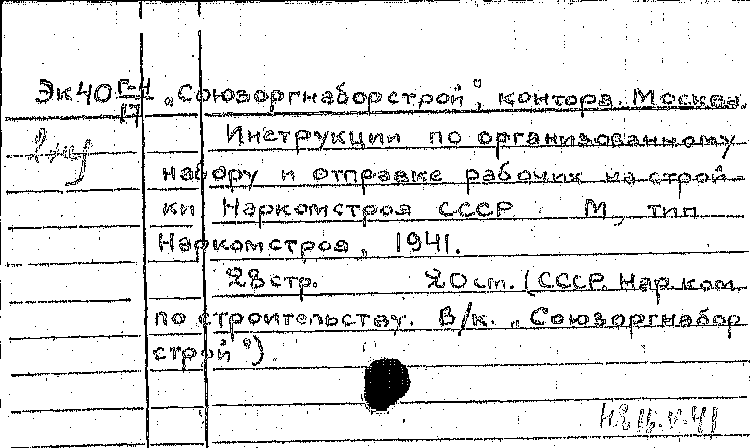 Эк40 Г-4 „Союзоргнаборстрой", контора. Москва.
17
2 экз
Инструкции по организованному
набору и отправке рабочих на строй-
ки Наркомстроя СССР М, тип
Наркомстроя, 1941.
28 стр. 20 см. (СССР. Нар. ком.
по строительству. В/к. „Союзоргнабор
строй")